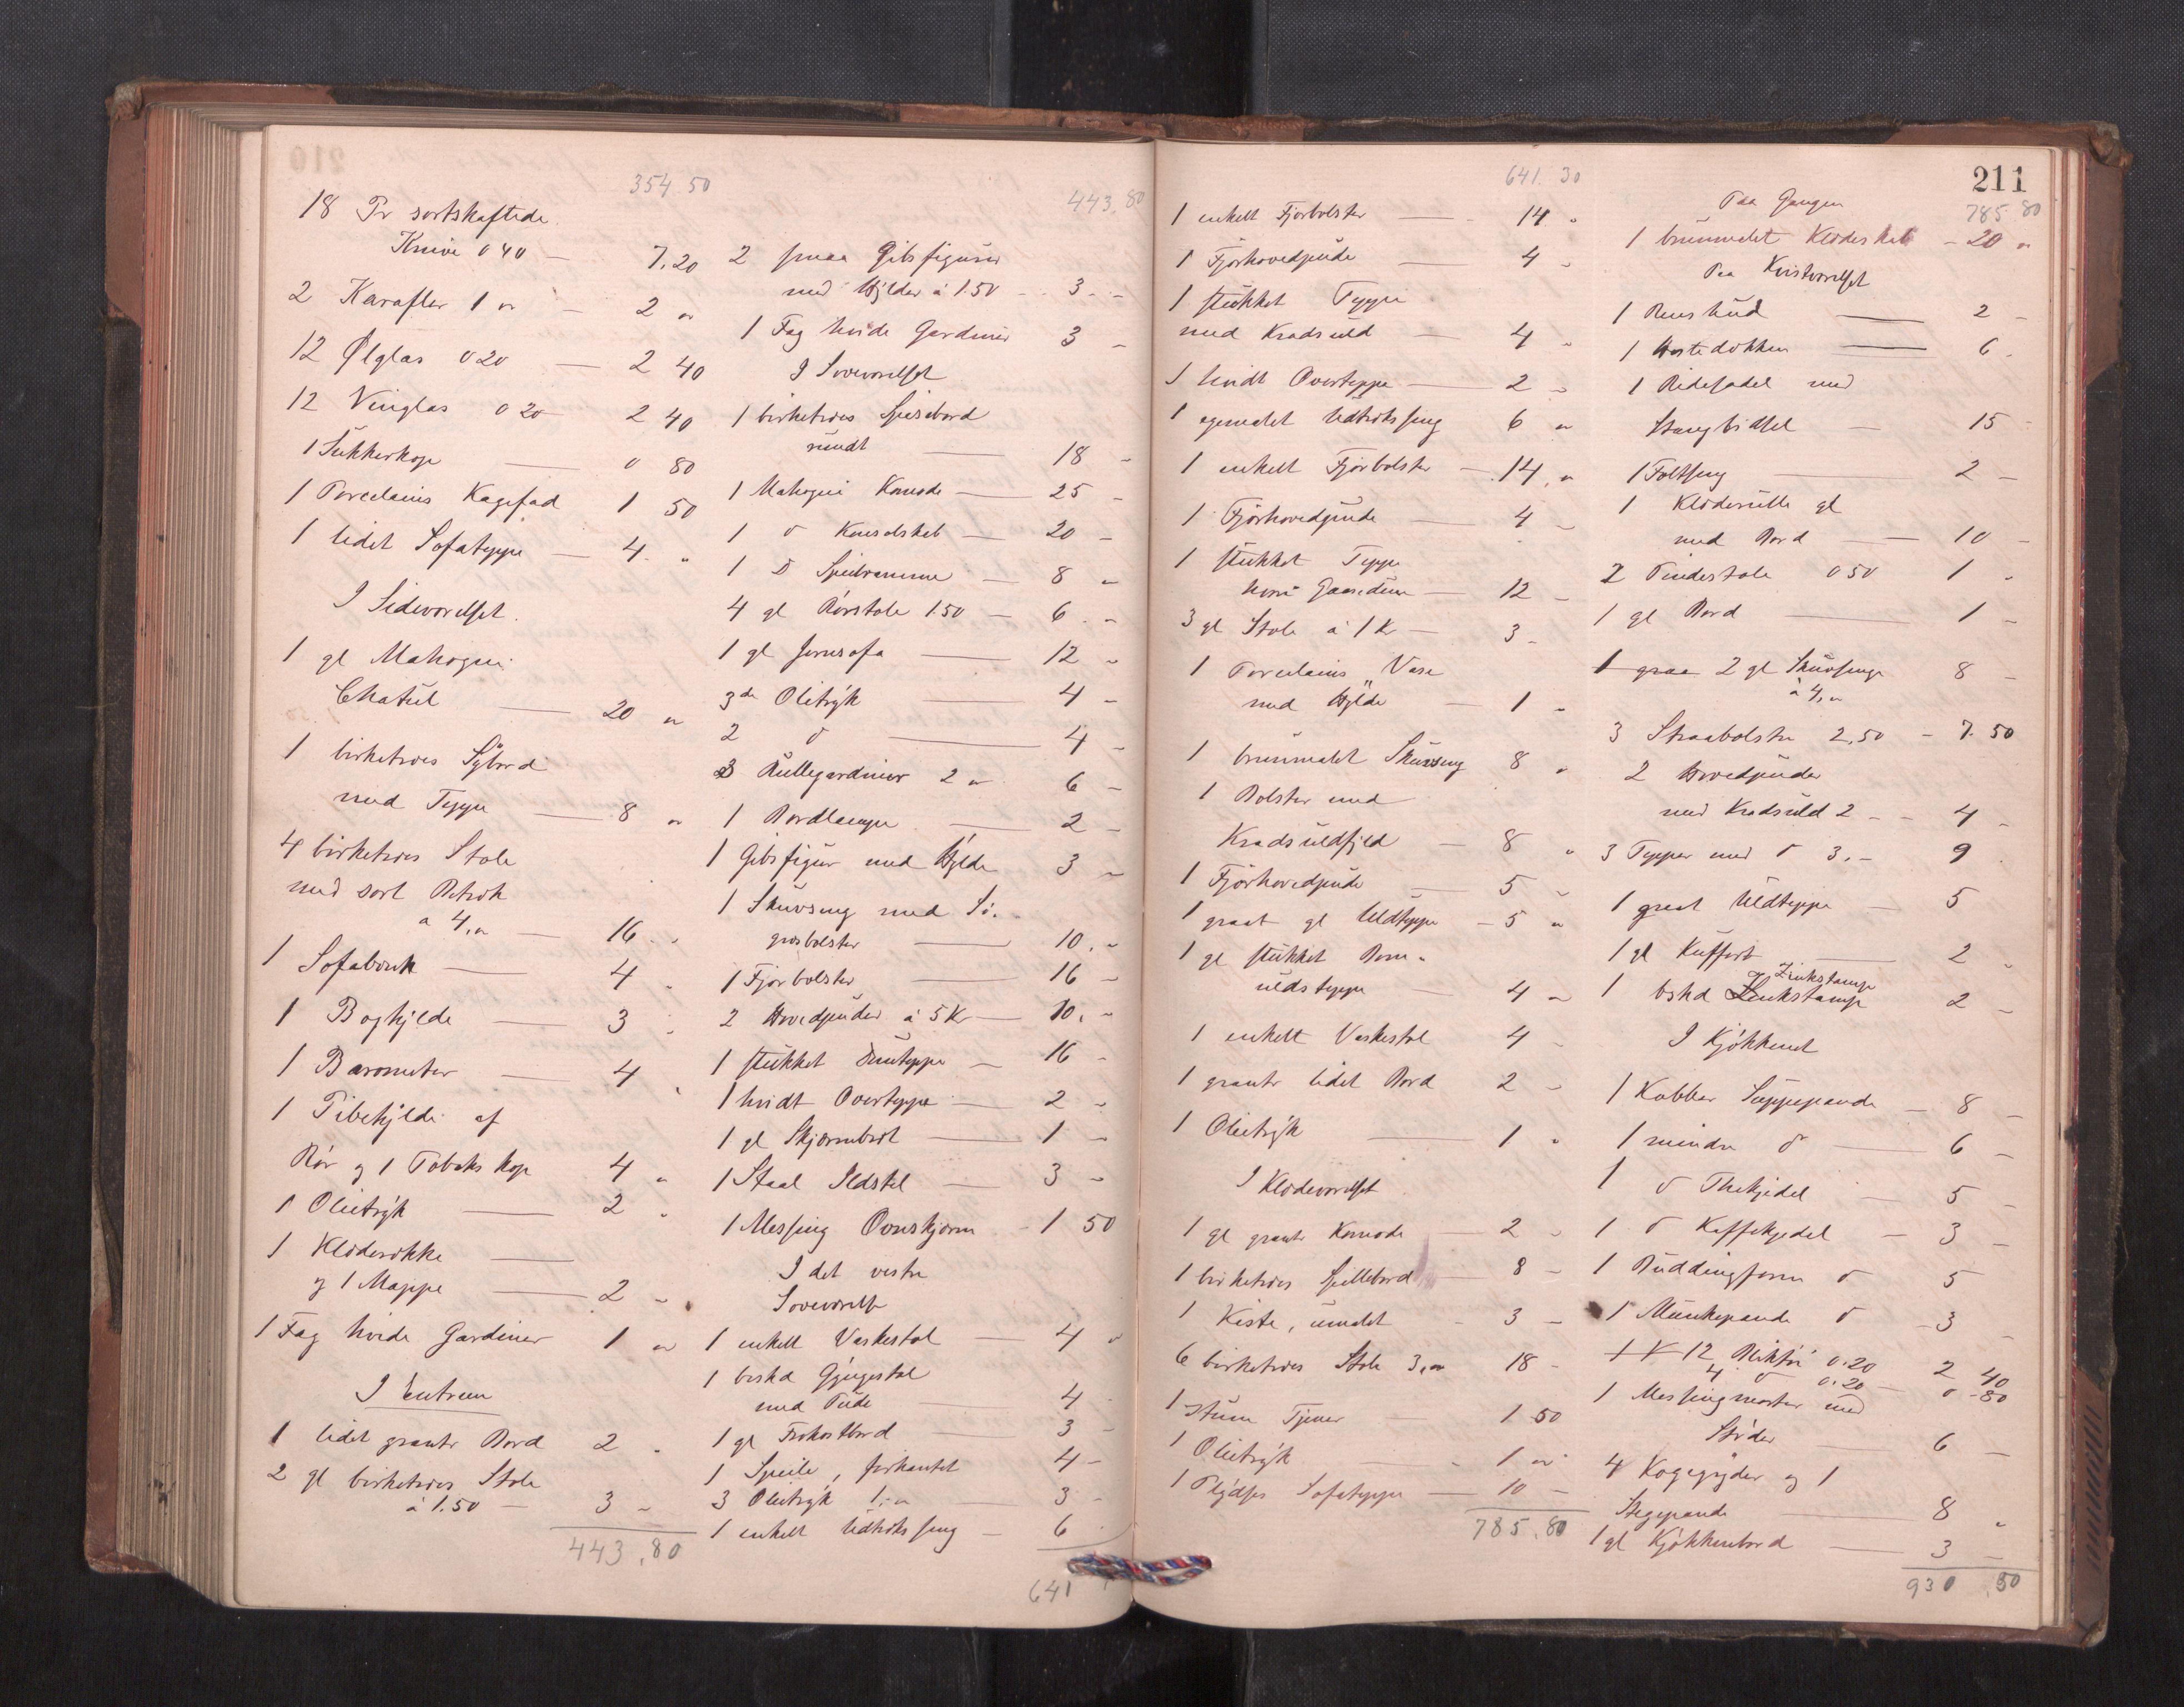 354.50
18 Pr sortskaftede
Knive 0 40 — 7.20
2 Karafler 1 „ — 2 „
12 Ølglas 0 20 — 2 40
12 Vinglas 0 20 2 40
1 Sukkerkop — 0 80
1 Porcelains Kagefad 1 50
1 lidet Sofateppe — 4 „
I Sideværelset.
1 gl Mahogni
Chatul — 20 „
1 birketræes Sÿbord
med Teppe — 8 „
4 birketræes Stole
med sort Betræk
a 4,„ — 16 „
1 Sofabænk — 4 „
1 Boghylde — 3 „
1 Barometer — 4 „
1 Pibehylde af
Rør og 1 Tobaks kop 4 „
1 Olietrÿk — 2 „
1 Klædesrække —
og 1 Mappe — 2 „
1 Fag hvide Gardiner 1 „
I Entreen
1 lidet grante Bord 2 „
2 gl birketræes Stole
á 1.50 — 3 „
443,80
443,80
2 smaa Gibsfigurer
med Hÿlder á 1.50 — 3 „
1 Fag hvide Gardiner 3 „
I Soveværelset
1 birketræes Spisebord
rundt — 18 „
1 Mahogni Komode — 25 „
1 d Konsolskab — 20 „
1 D Speilramme — 8 „
4 gl Rørstole 1.50 — 6 „
1 gl Jernsofa — 12 „
3de Olietrÿk — 4 „
2 d — 4 „
3 Rullegardiner 2 „ 6 „
1 Bordlampe — 2 „
1 Gibsfigur med Hÿlde 3 „
1 Skuvseng med Sø-
græsbolster — 10 „
1 Fjørbolster — 16 „
2 Hovedpuder á 5 Kr — 10 „
1 stukket Duntæppe — 16 „
1 hvidt Overteppe — 2 „
1 gl Skjærmbræt — 1 „
1 Staal Ildstel — 3 „
1 Messing Ovnskjærm — 1 50
I det vestre
Soveværelse
1 enkelt Vaskestol — 4 „
1 beskd Gÿngestol
med Pude — 4 „
1 gl Frokostbord — 3 „
1 Speile, firkantet 4 „
3 Olietrÿk 1,„ — 3 „
1 enkelt Udtræksseng — 6 „
641
641.30
1 enkelt Fjørbolster — 14 „
1 Fjørhovedpude — 4 „
1 stukket Teppe
med Kradsuld — 4 „
1 hvidt Overteppe — 2 „
1 egemalet Udtræksseng 6 „
1 enkelt Fjørbolster — 14 „
1 Fjørhovedpude — 4 „
1 stukket Teppe
hvori Gaasedun — 12 „
3 gl Stole á 1 Kr — 3 „
1 Porcelains Vase
med Hÿlde — 1 „
1 brunmalet Skuvseng 8 „
1 Bolster med
Kradsuldfyld — 8 „
1 Fjørhovedpude — 5 „
1 graat gl Uldteppe — 5 „
1 gl stukket Bom-
uldsteppe — 4 „
1 enkelt Vaskestol 4 „
1 grante lidet Bord 2 „
1 Olietrÿk — 1 „
I Klædeværelset
1 gl grante Komode — 2 „
1 birketræes Spillebord 8 „
1 Kiste, umalet — 3 „
6 birketræes Stole 3,„ 18 „
1 Stum Tjener — 1 50
1 Olietrÿk — 1 „
1 Plÿdses Sofateppe — 10 „
785,80
211
Paa Gangen 785.80
1 brunmalet Klædeskab — 20 „
Paa Kvistværelset
1 Renshud — 2 „
1 Hestedækken — 6 „
1 Ridesadel med
Stangbidsel — 15 „
1 Feltseng — 2 „
1 Klæderulle gl
med Bord — 10 „
2 Pindestole 0 50 1 „
1 gl Bord — 1 „
1 graa 2 gl Skuvsenge 8 „
á 4,„
3 Straabolstre 2.50 — 7.50
2 Hovedpuder
med Kradsuld 2 — 4 „
3 Tepper med d 3,- 9
1 graat Uldteppe — 5
1 gl Kuffert — 2 „
Zinkstamp
1 beskd Zinkstamp 2 „
I Kjøkkenet
1 Kobber Suppepande — 8 „
1 mindre d — 6 „
1 d Thekjedel — 5 „
1 d Kaffekjedel — 3 „
1 Puddingform d 5
1 Munkepande d — 3 „
12 Blikfu 0.20 2 40
4 d 0.20 — 0 80
1 Messingmorter med
Støder — 6 „
4 Kogegrÿder og 1
Stegepande — 8 „
1 gl Kjøkkenbord — 3 „
930,50